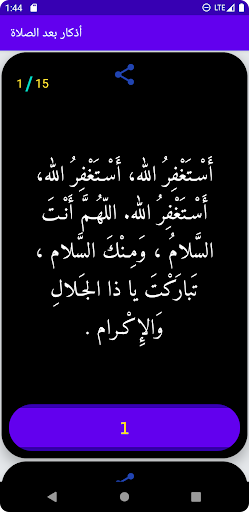 1:44
LTE
أذكار بعد الصلاة
1/15
أَسْتَغْفِرُ الله، أَسْتَغْفِرُ الله،
أَسْتَغْفِرُ الله. اللّهُمَّ أَنْتَ
السَّلامُ ، وَمِنْكَ السَّلام ،
تَبارَكْتَ يا ذا الجَلالِ
وَالإِكْرام .
1